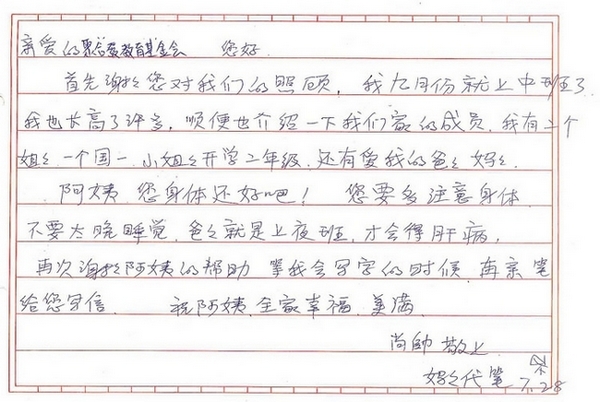 亲爱的聚合發教育基金会 您好
首先謝謝您对我们的照顾，我九月份就上中班了
我也长高了许多，顺便也介绍一下我们家的成员，我有二个
姐々一个国一，小姐々开学二年级，还有爱我的爸々妈々。
阿姨 您身体还好吧！ 您要多注意身体
不要太晚睡觉，爸々就是上夜班，才会得肝病，
再次謝謝阿姨的帮助 等我会写字的时候 再亲笔
给您写信． 祝阿姨 全家幸福 美满
尚帥 敬上
妈々代笔 7.28